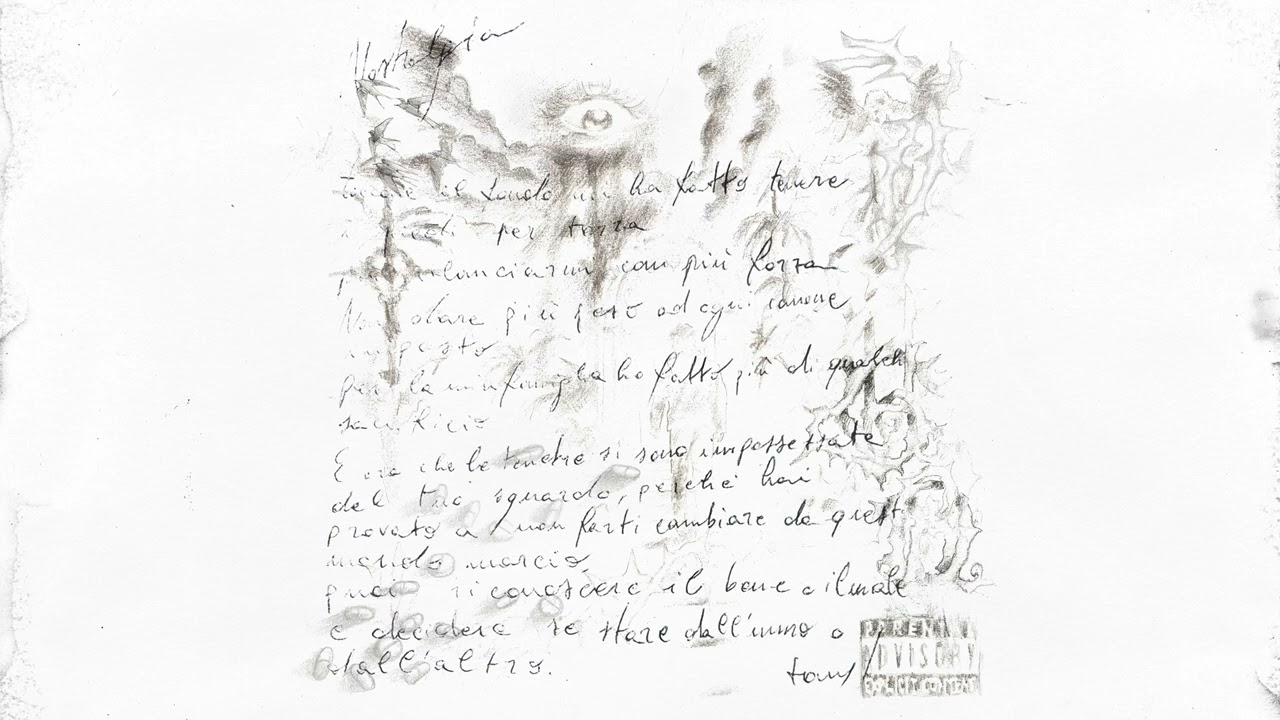 Nostalgia
Toccare el fondo mi ha fatto tenere
i piedi per terra
per lanciarmi con più forza
Non dare più peso ad ogni canone
imposto
per la mia famiglia ho fatto più di qualche
sacrificio
E ora che le tenebre si sono impossessate
del tuo sguardo, perché hai
provato a non farti cambiare da questo
mondo marcio,
puoi riconoscere il bene e il male
e decidere se stare dall'uno o
dall'altro.
tony
PARENTAL
ADVISORY
EXPLICIT CONTENT